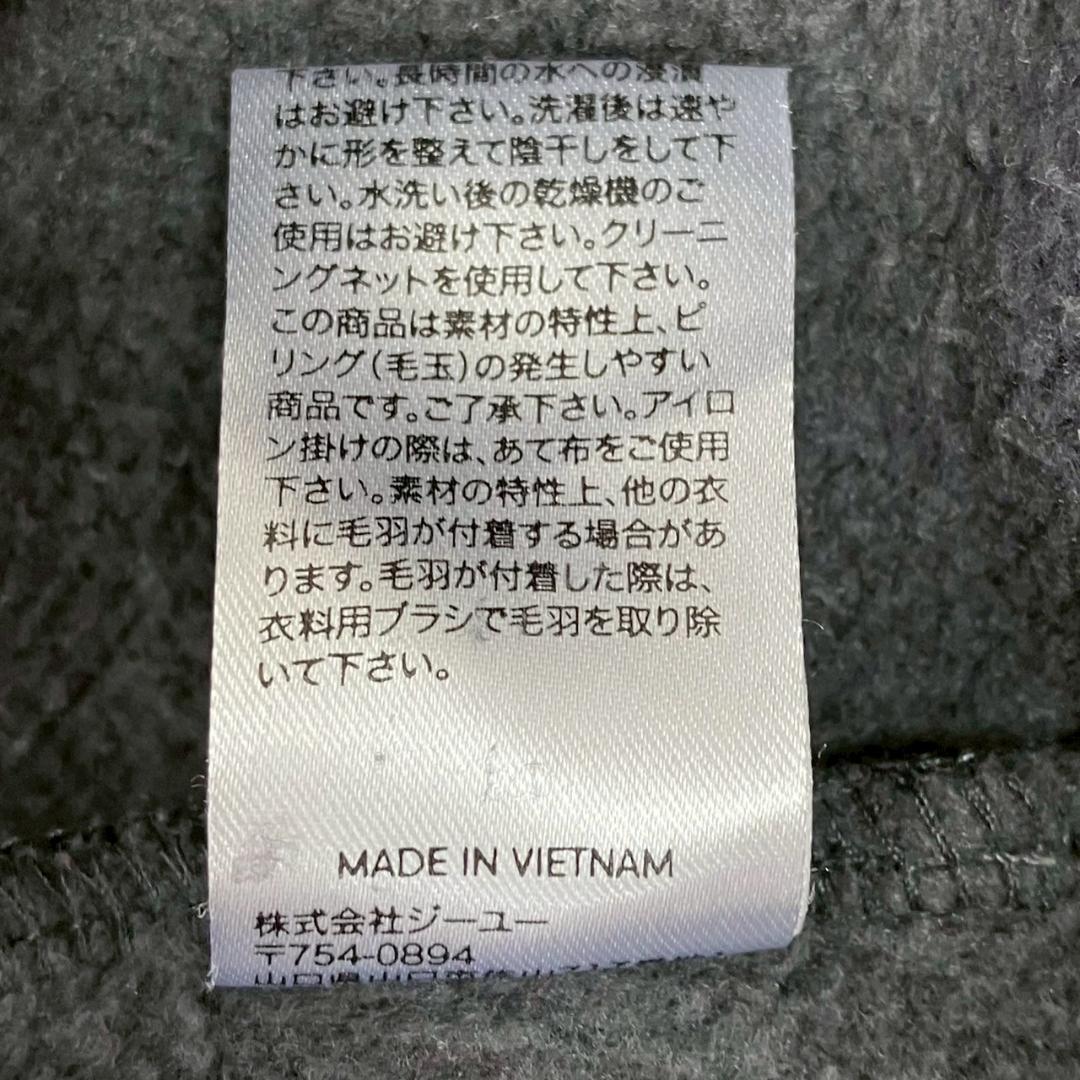 下さい。長時間の水への浸漬
はお避け下さい。洗濯後は速や
かに形を整えて陰干しをして下
さい。水洗い後の乾燥機のご
使用はお避け下さい。クリーニ
ングネットを使用して下さい。
この商品は素材の特性上、ピ
リング(毛玉)の発生しやすい
商品です。ご了承下さい。アイロ
ン掛けの際は、あて布をご使用
下さい。素材の特性上、他の衣
料に毛羽が付着する場合があ
ります。毛羽が付着した際は、
衣料用ブラシで毛羽を取り除
いて下さい。
MADE IN VIETNAM
株式会社ジーユー
〒754-0894
山口県山口市佐山